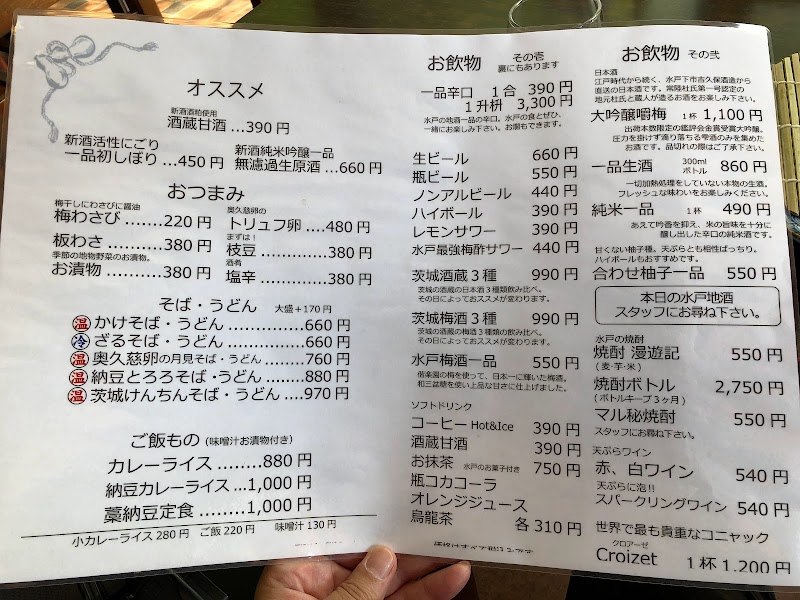 オススメ
新酒酒粕使用
酒蔵甘酒 ...390 円
新酒活性にごり
一品初しぼり ...450 円
新酒純米吟醸一品
無濾過生原酒 ...660 円
おつまみ
梅干しにわさびに醤油
梅わさび .......220 円
板わさ .........380 円
季節の地物野菜のお漬物。
お漬物 .........380 円
奥久慈卵の
トリュフ卵 ....480 円
まずは!
枝豆 .............380 円
酒肴
塩辛 .............380 円
そば・うどん 大盛+170 円
温 かけそば・うどん ..............660 円
冷 ざるそば・うどん ..............660 円
温 奥久慈卵の月見そば・うどん .......760 円
温 納豆とろろそば・うどん .......880 円
温 茨城けんちんそば・うどん ....970 円
ご飯もの (味噌汁お漬物付き)
カレーライス ........880 円
納豆カレーライス ...1,000 円
藁納豆定食 ........1,000 円
小カレーライス 280 円 ご飯 220 円 味噌汁 130 円
お飲物 その壱
裏にもあります
一品辛口 1 合 390 円
1 升枡 3,300 円
水戸の地酒一品の辛口。水戸の食とぜひ、
一緒にお楽しみ下さい。お燗もできます。
生ビール 660 円
瓶ビール 550 円
ノンアルビール 440 円
ハイボール 390 円
レモンサワー 390 円
水戸最強梅酢サワー 440 円
茨城酒蔵 3 種 990 円
茨城の酒蔵の日本酒 3 種類飲み比べ。
その日によっておススメが変わります。
茨城梅酒 3 種 990 円
茨城の酒蔵の梅酒 3 種類の飲み比べ。
その日によっておススメが変わります。
水戸梅酒一品 550 円
偕楽園の梅を使って、日本一に輝いた梅酒。
和三盆糖を使い上品な甘さに仕上げました。
ソフトドリンク
コーヒー Hot&Ice 390 円
酒蔵甘酒 390 円
お抹茶 水戸のお菓子付き 750 円
瓶コカコーラ
オレンジジュース
烏龍茶 各 310 円
お飲物 その弐
日本酒
江戸時代から続く、水戸下市吉久保酒造から
直送の日本酒です。常陸杜氏第一号認定の
地元杜氏と蔵人が造るお酒をお楽しみ下さい。
大吟醸嚼梅 1 杯 1,100 円
出荷本数限定の鑑評会金賞受賞大吟醸。
圧力を掛けず滴り落ちる雫酒のみを集めた
お酒です。品切れの際はご了承下さい。
一品生酒 300ml ボトル 860 円
一切加熱処理をしていない本物の生酒。
フレッシュな味わいをお楽しみください。
純米一品 1 杯 490 円
あえて吟香を抑え、米の旨味を十分に
醸し出した辛口の純米酒です。
甘くない柚子種。天ぷらとも相性ばっちり。
ハイボールもおすすめです。
合わせ柚子一品 550 円
本日の水戸地酒
スタッフにお尋ね下さい。
水戸の焼酎
焼酎 漫遊記 550 円
(麦・芋・米)
焼酎ボトル 2,750 円
(ボトルキープ 3 ヶ月)
マル秘焼酎 550 円
スタッフにお尋ね下さい。
天ぷらワイン
赤、白ワイン 540 円
天ぷらに泡!!
スパークリングワイン 540 円
世界で最も貴重なコニャック
クロアーゼ
Croizet 1 杯 1,200 円